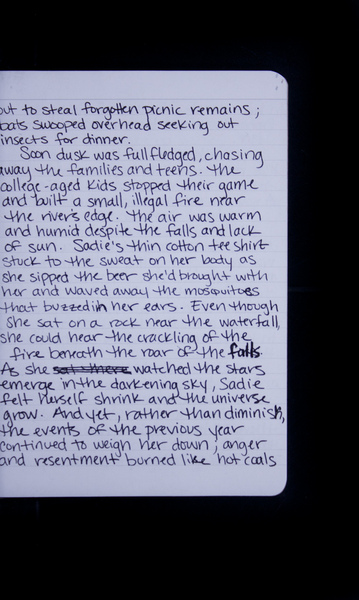 out to steal forgotten picnic remains;
bats swooped overhead seeking out
insects for dinner.
Soon dusk was full fledged, chasing
away the families and teens. The
college-aged kids stopped their game
and built a small, illegal fire near
the river's edge. The air was warm
and humid despite the falls and lack
of sun. Sadie's thin cotton tee shirt
stuck to the sweat on her body as
she sipped the beer she'd brought with
her and waved away the mosquitoes
that buzzed in her ears. Even though
she sat on a rock near the waterfall,
she could hear the crackling of the
fire beneath the roar of the falls.
As she sat there watched the stars
emerge in the darkening sky, Sadie
felt herself shrink and the universe
grow. And yet, rather than diminish,
the events of the previous year
continued to weigh her down; anger
and resentment burned like hot coals